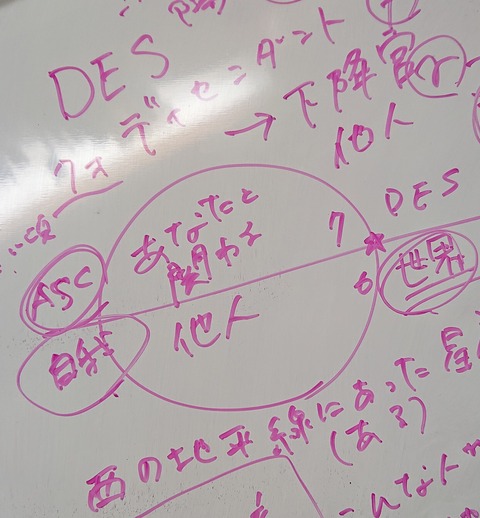 DES
ディセンダント
→ 下降宮
他人
DES
あなたと
関わる
7
ASC
6
世界
他人
自我
西の地平線にあった星
(ある)
こんな人が